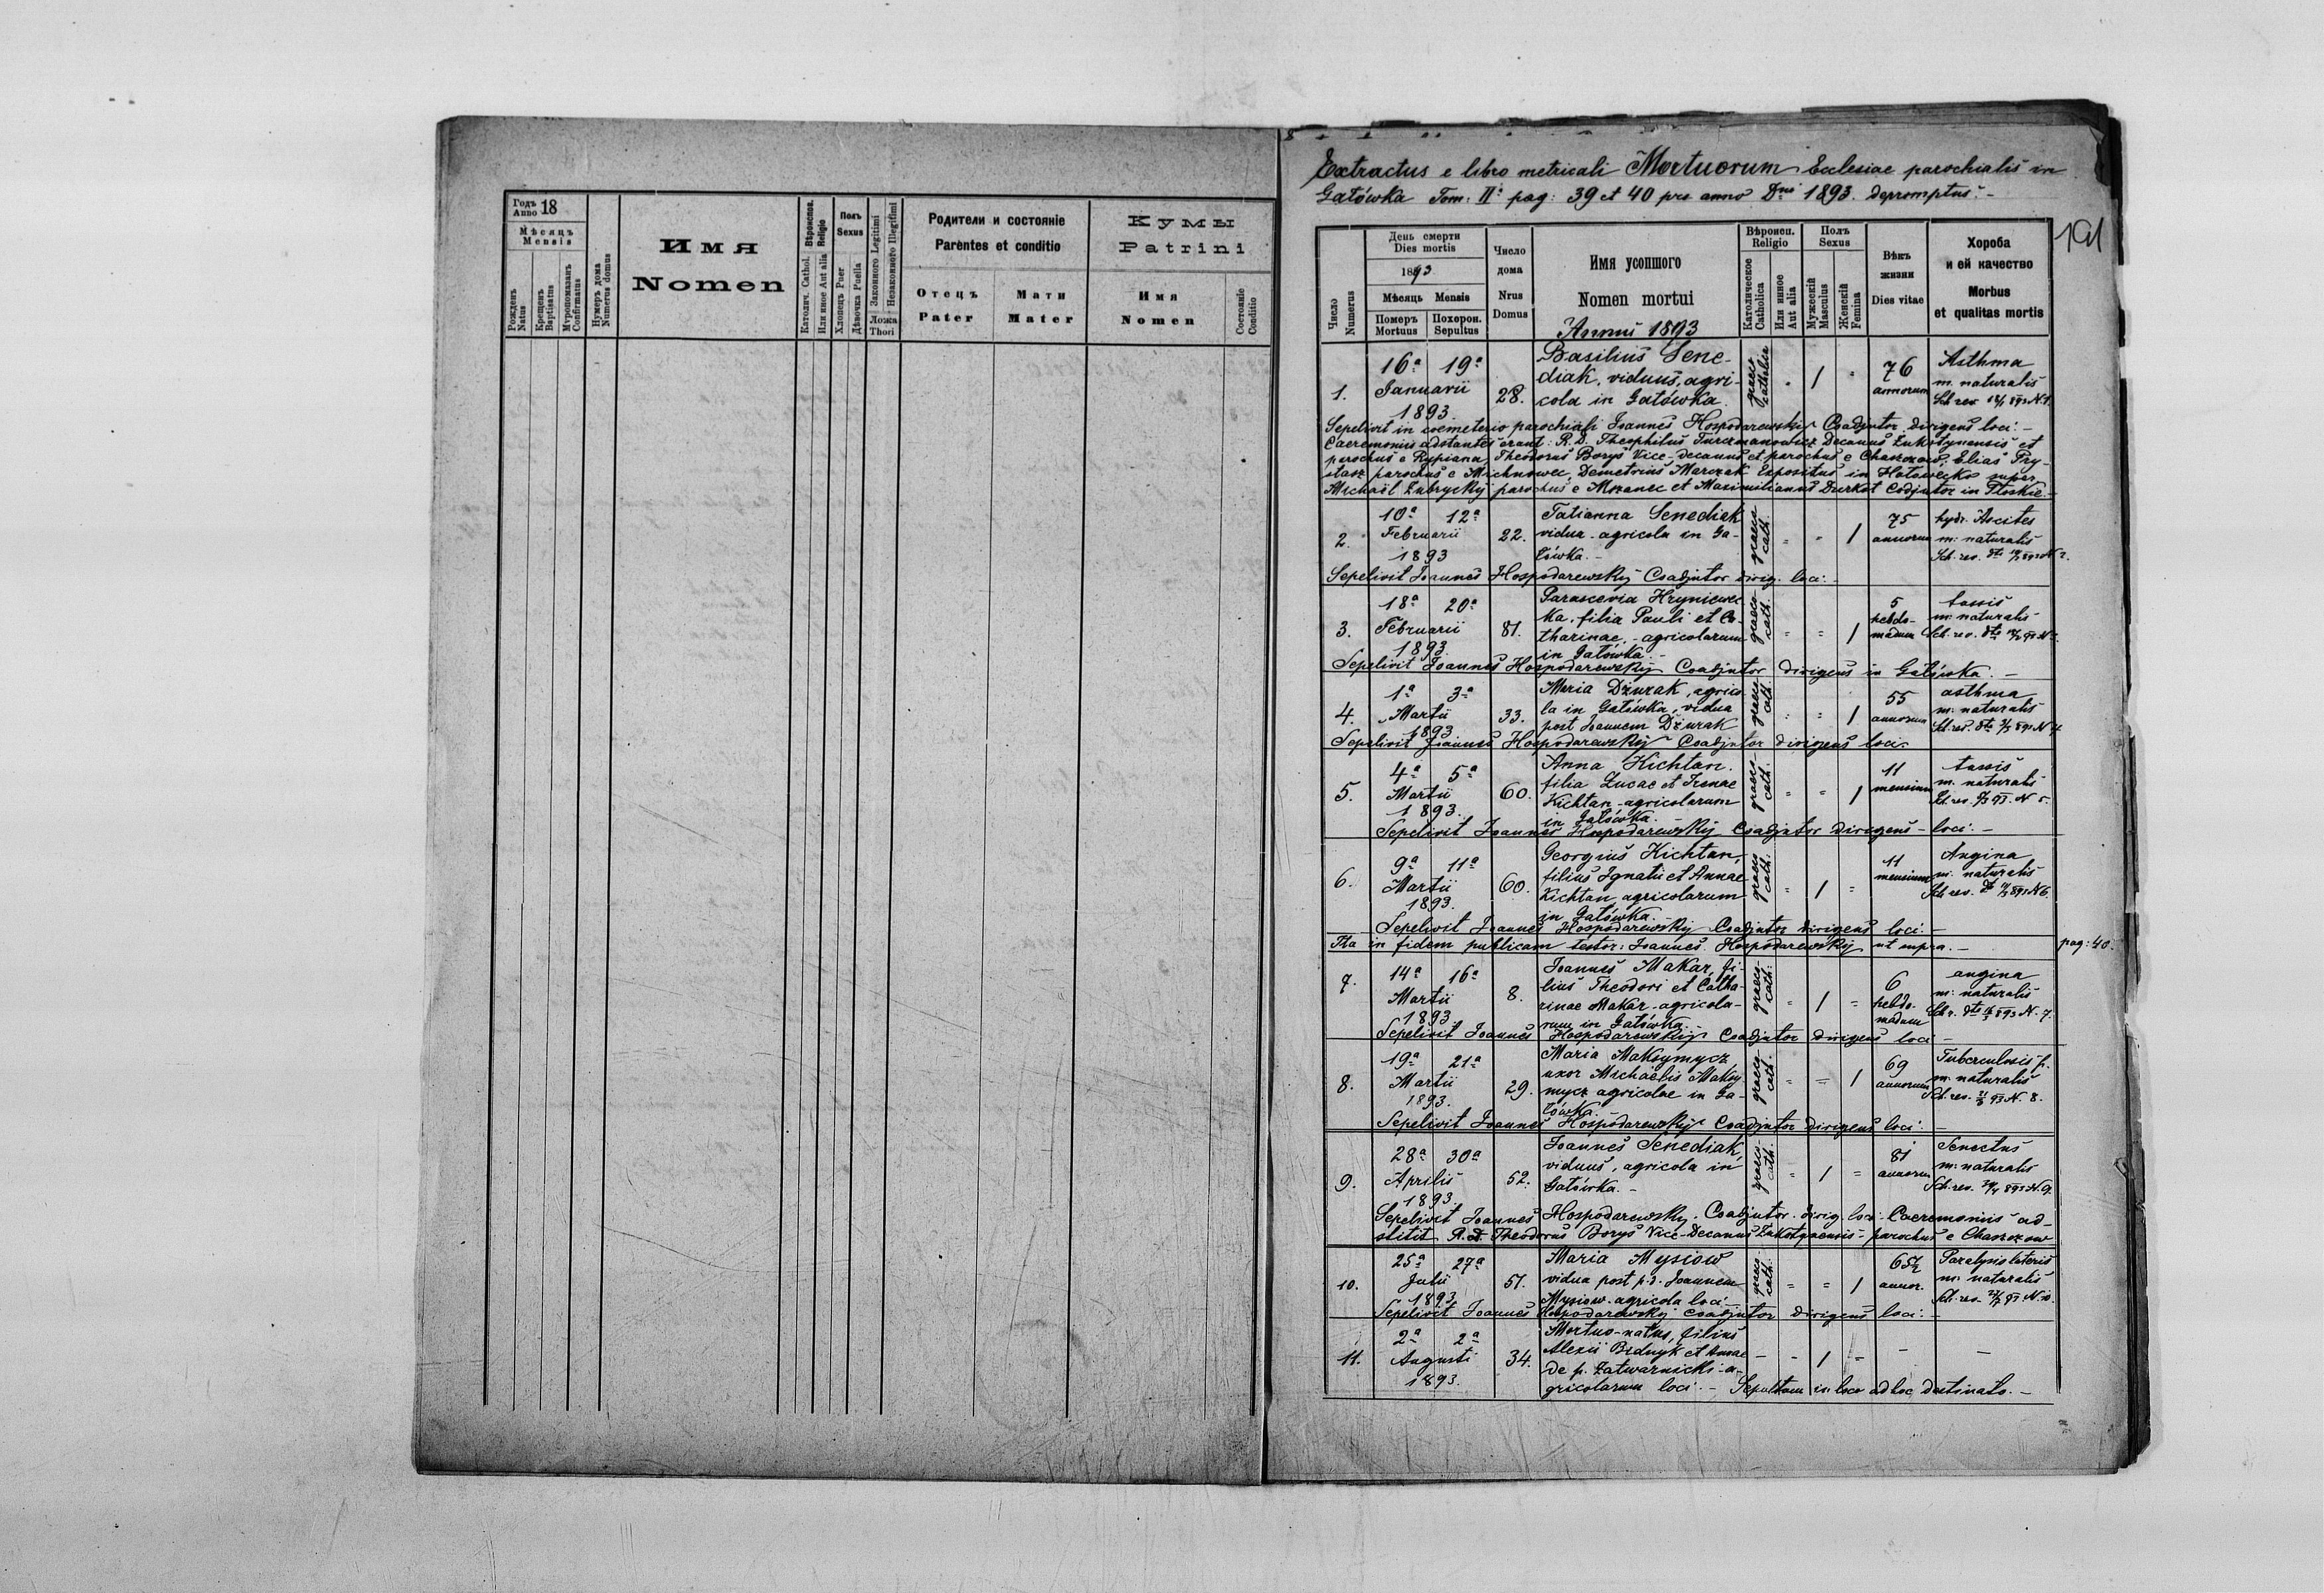 Годъ
Anno 18
Мѣсяцъ
Mensis
Рожденъ
Natus
Крещенъ
Baptisatus
Мѵропомазанъ
Confirmatus
Нумеръ дома
Numerus domus
Имя
Nomen
Вѣроиспов.
Religio
Католич. Cathol.
Или иное Aut alia
Полъ
Sexus
Хлопецъ Puer
Дѣвочка Puella
Законного Legitimi
Незаконного Illegitimi
Ложа
Thori
Родители и состоянie
Parentes et conditio
Отецъ
Pater
Мати
Mater
Кумы
Patrini
Имя
Nomen
Состоянie
Conditio
Extractus e libro metricali Mortuorum Ecclesiae parochialis in
Gatówka Tom: II: pag: 39 et 40 pro anno Dni 1893. depromptus. -
191
Число
Numerus
День смерти
Dies mortis
1893
Мѣсяць Mensis
Померъ
Mortuus
Похорон.
Sepultus
Число
дома
Nrus
Domus
Имя усопшого
Nomen mortui
Anni 1893
Вѣроисп.
Religio
Католическое
Catholica
Или инное
Aut alia
Полъ
Sexus
Мужескiй
Masculus
Женскiй
Femina
Вѣкъ
жизни
Dies vitae
Хороба
и ей качество
Morbus
et qualitas mortis
1. 16a 19a Januarii 1893. 28. Basilius Sene-
diak, viduus, agri-
cola in Gatówka. graeco Catholica 1 76 annorum Asthma
m. naturalis
Sepelivit in coemeterio parochiali Joannes Hospodarewskyj Coadjutor dirigens loci. -
Caeremoniis adstantes erant: R. D. Theophilus Turczmanowicz Decanus Żukotynensis et
parochus e Rypiana, Theodorus Borys Vice-Decanus et parochus e Chaszczow, Elias Pry-
stasz parochus e Michnowec, Demetrius Marczak Expositus in Hołowecko super
Michaël Zubryckyj parochus e Mszanec et Maximilianus Durkot Codjutor in Płoskie. -
2. 10a 12a Februarii 1893 22. Tatianna Senediak
vidua - agricola in Ga-
tówka. - graeco cath. 1 75 annorum hydr. Ascites
m: naturalis
Sepelivit Joannes Hospodarewskyj Coadjutor dirig. loci. -
3. 18a 20a Februarii 1893. 81. Parascevia Hryniewec-
ka, filia Pauli et Ca-
tharinae, - agricolarum
in Gatówka. - graeco cath. 1 5 hebdo-
madum tussis
m: naturalis
Sepelivit Joannes Hospodarewskyj Coadjutor dirigens in Gatówka. -
4. 1a 3a Martii 1893 33. Maria Dżurak, agrico-
la in Gatówka, vidua
post Joannem Dżurak graeco cath. 1 55 annorum asthma
m: naturalis
Sepelivit Joannes Hospodarewskyj Coadjutor dirigens loci.
5. 4a 5a Martii 1893. 60. Anna Kichtan.
filia Lucae et Irenae
Kichtan - agricolarum
in Gatówka. - graeco cath. 1 11 mensium tussis
m. naturalis
Sepelivit Joannes Hospodarewskyj Coadjutor dirigens - loci. -
6. 9a 11a Martii 1893. 60. Georgius Kichtan,
filius Ignatii et Annae
Kichtan agricolarum
in Gatówka. - graeco cath. 1 11 mensium Angina
m. naturalis
Sepelivit Joannes Hospodarewskyj Coadjutor dirigens loci. -
Ita in fidem publicam testor: Joannes Hospodarewskyj ut supra. -
pag: 40.
7. 14a 16a Martii 1893. 8. Joannes Makar, fi-
lius Theodori et Catha-
rinae Makar - agricola-
rum in Gatówka. graeco-cath. 1 6 hebdo-
madum angina
m: naturalis
Sepelivit Joannes Hospodarewskyj Coadjutor dirigens loci -
8. 19a 21a Martii 1893. 29. Maria Maksymycz
uxor Michaëlis Maksy-
mycz agricolae in Ga-
tówka. - graeco cath. 1 69 annorum Tuberculosis p.
m. naturalis
Sepelivit Joannes Hospodarewskyj Coadjutor dirigens loci. -
9. 28a 30a Aprilis 1893. 52. Joannes Senediak,
viduus, agricola in
Gatówka. - graeco cath. 1 81 annorum Senectus
m: naturalis
Sepelivit Joannes Hospodarewskyj. Coadjutor. dirig. loci. Caeremoniis ad-
stitit R. D. Theodorus Borys Vice-Decanus Żukotynensis - parochus e Chaszczow
10. 25a 27a Julii 1893. 51. Maria Mysiow
vidua post p. d. Joannem
Mysiow. agricola loci graeco cath. 1 65½ annor. Paralysis lateris
m: naturalis
Sepelivit Joannes Hospodarewskyj coadjutor dirigens loci. -
11. 2a 2a Augusti 1893. 34. Mortuo-natus, filius
Alexii Bednyk et Annae
de p. Zatwarnicki - a-
gricolarum loci. - 1 Sepultum in loco ad hoc destinato. -